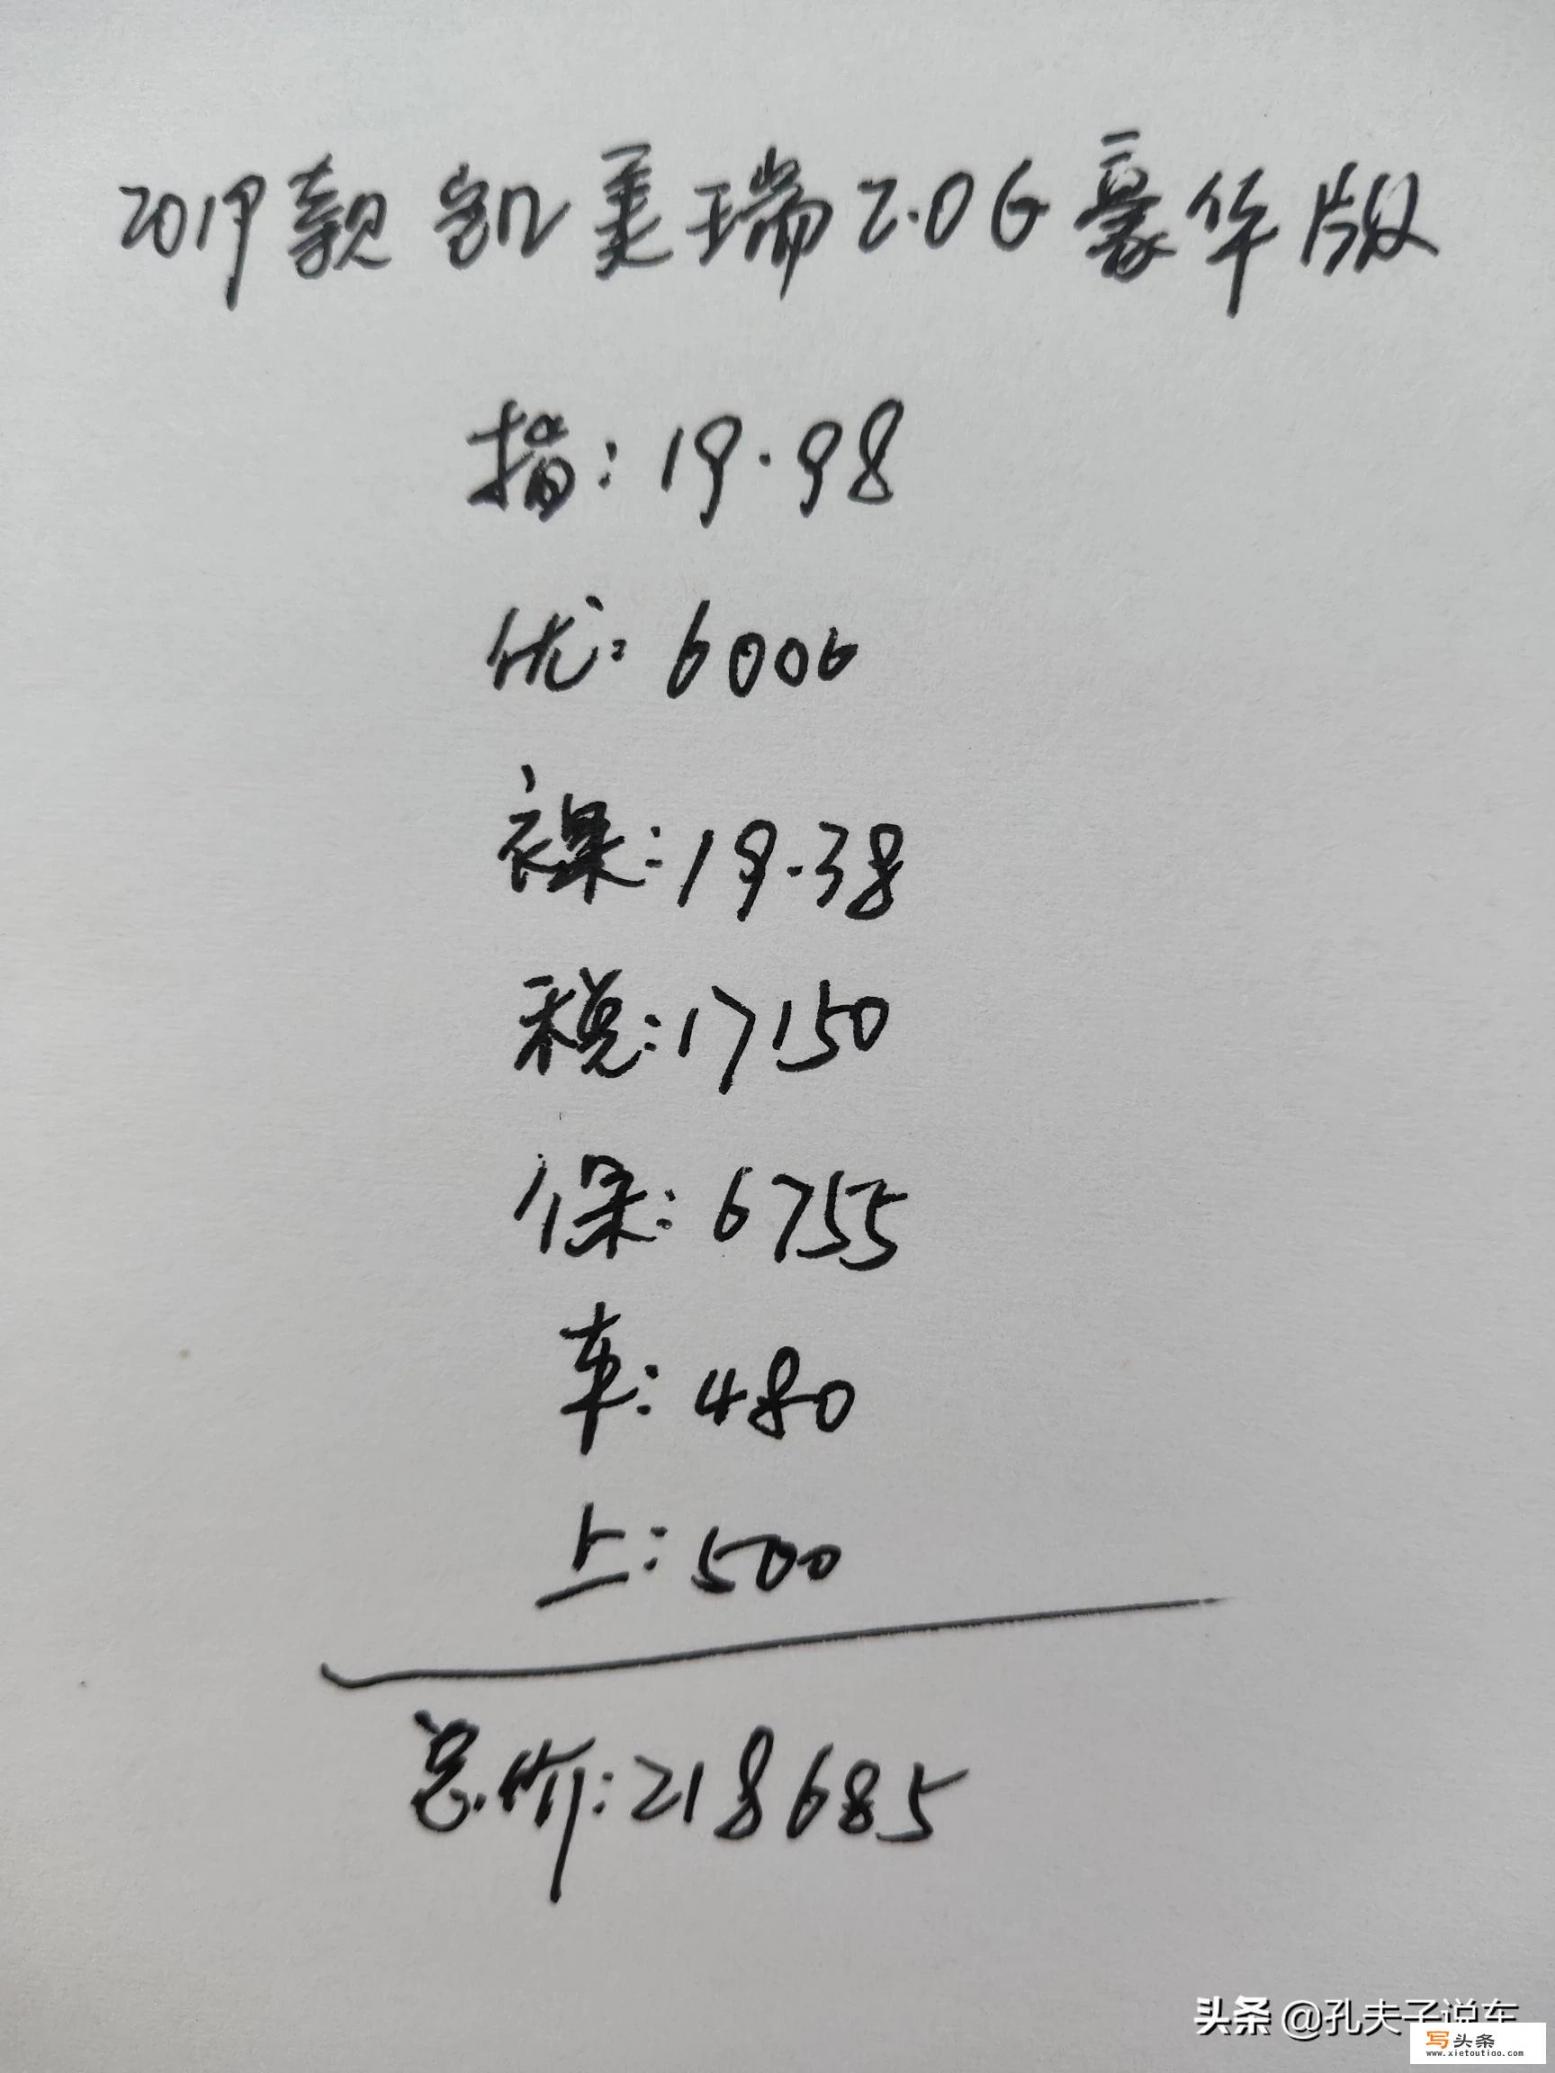 2019款凯美瑞2.0G豪华版
指:19.98
优:6000
裸:19.38
税:17150
保:6755
车:480
上:500
总价:218685
头条 @孔夫子说车
写头条
www.xietoutiao.com